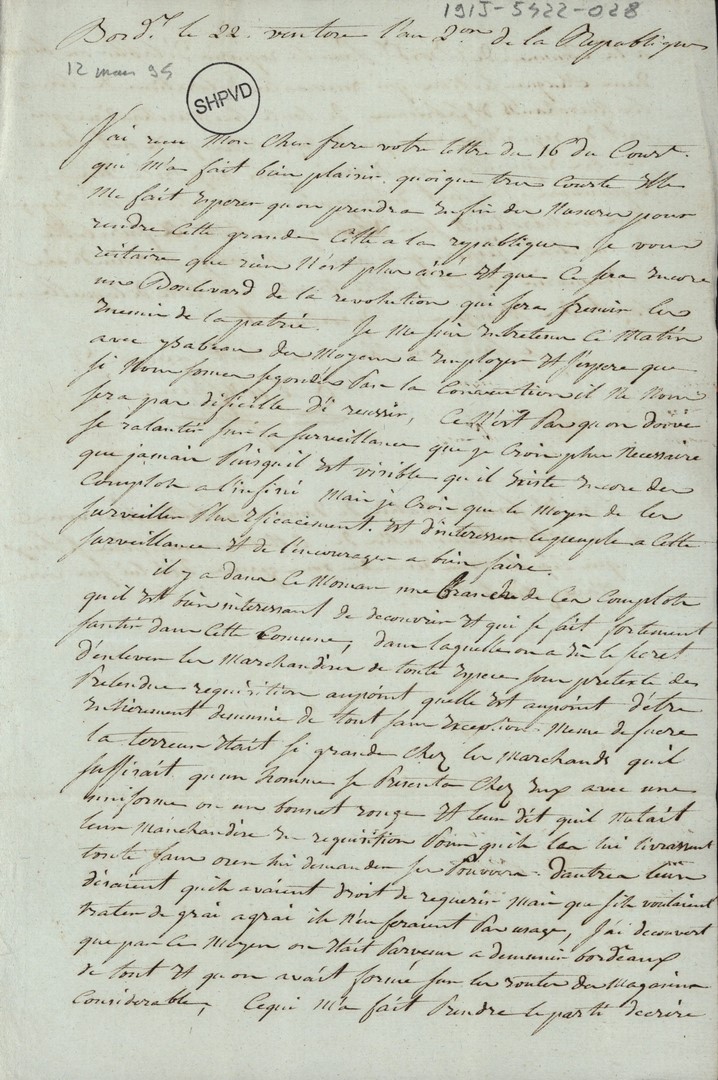 191J-5422-028
Bord.x le 22 ventose l'an 2.on de la Republique
12 mars 94
SHPVD
J'ai reçu Mon cher frere votre lettre du 16 du Cour.t
qui m'a fait bien plaisir quoique tres Courte Elle
Me fait Esperer qu'on prendra Enfin des Mesures pour
rendre Cette grande Cité a la republique, je vous
reitaire que rien N'est plus aisé Et que Ce sera Encore
un Boulevard de la revolution qui fera fremir les
Enemis de la patrie. Je Me suis Entretenu Ce Matin
avec ysabeau des Moyens a Employer Et j'espere que
si Nous somes segondés Par la Convention il Ne Nous
sera pas dificille d'i reussir, Ce N'est Pas qu'on doive
se ralantir sur la surveillance que je Crois plus Necessaire
que jamais Puisqu'il Est visible qu'il Existe Encore des
Complots a l'infini Mais je Crois que le Moyen de les
surveiller Plus Eficacement. Est d'interesser le peuple a Cette
surveillance Et de l'encourager a bien faire.
il y a dans Ce Moman une branche de Ces Complots
qu'il Est bien interessant de decouvrir Et qui se fait fortement
santir dans Cette Comune, dans laquelle on a eu le secret
d'enlever les Marchandises de toute Espece sous pretexte des
Pretendue requisition aupoint quelle Est aupoint d'être
Entierement demunie de tout sans Exception Meme de sucre
la terreur Etait si grande Chez les Marchands qu'il
suffisait qu'un homme se Presenta Chez Eux avec une
uniforme ou un bonnet rouge Et leur dit quil Metait
leur Marchandise En requisition Pour quils les lui livrassent
toute sans oser lui demander ses Pouvoirs. Dautres leur
disaient quils avaient droit de requerir Mais que sils voulaient
traiter de grai agrai ils n'en feraient Pas usage, J'ai decouvert
que par Ce Moyen on Etait Parvenu a demunir bordeaux
de tout Et qu'on avait formé sur les routes des Magasins
Considerable, Cequi M'a fait Prendre le parti decrire